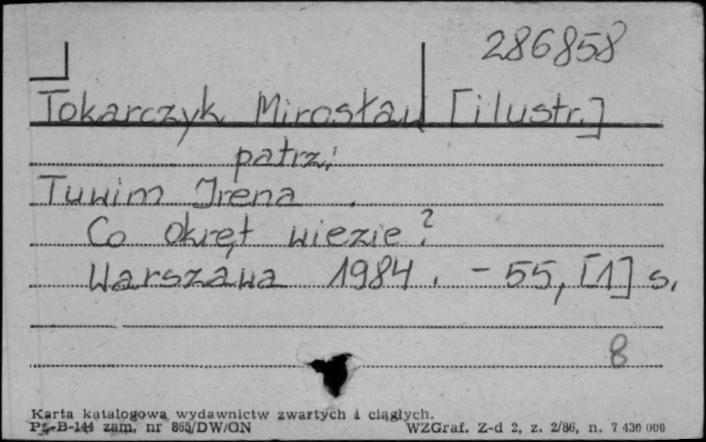 286858
Tokarczyk Mirosław [ilustr.]
patrz:
Tuwim Irena .
Co okręt wiezie?
Warszawa 1984. - 55, [1] s.
8
Karta katalogowa wydawnictw zwartych i ciągłych.
Pu-B-144 zam. nr 865/DW/ON WZGraf. Z-d 2, z. 2/86, n. 7 430 000